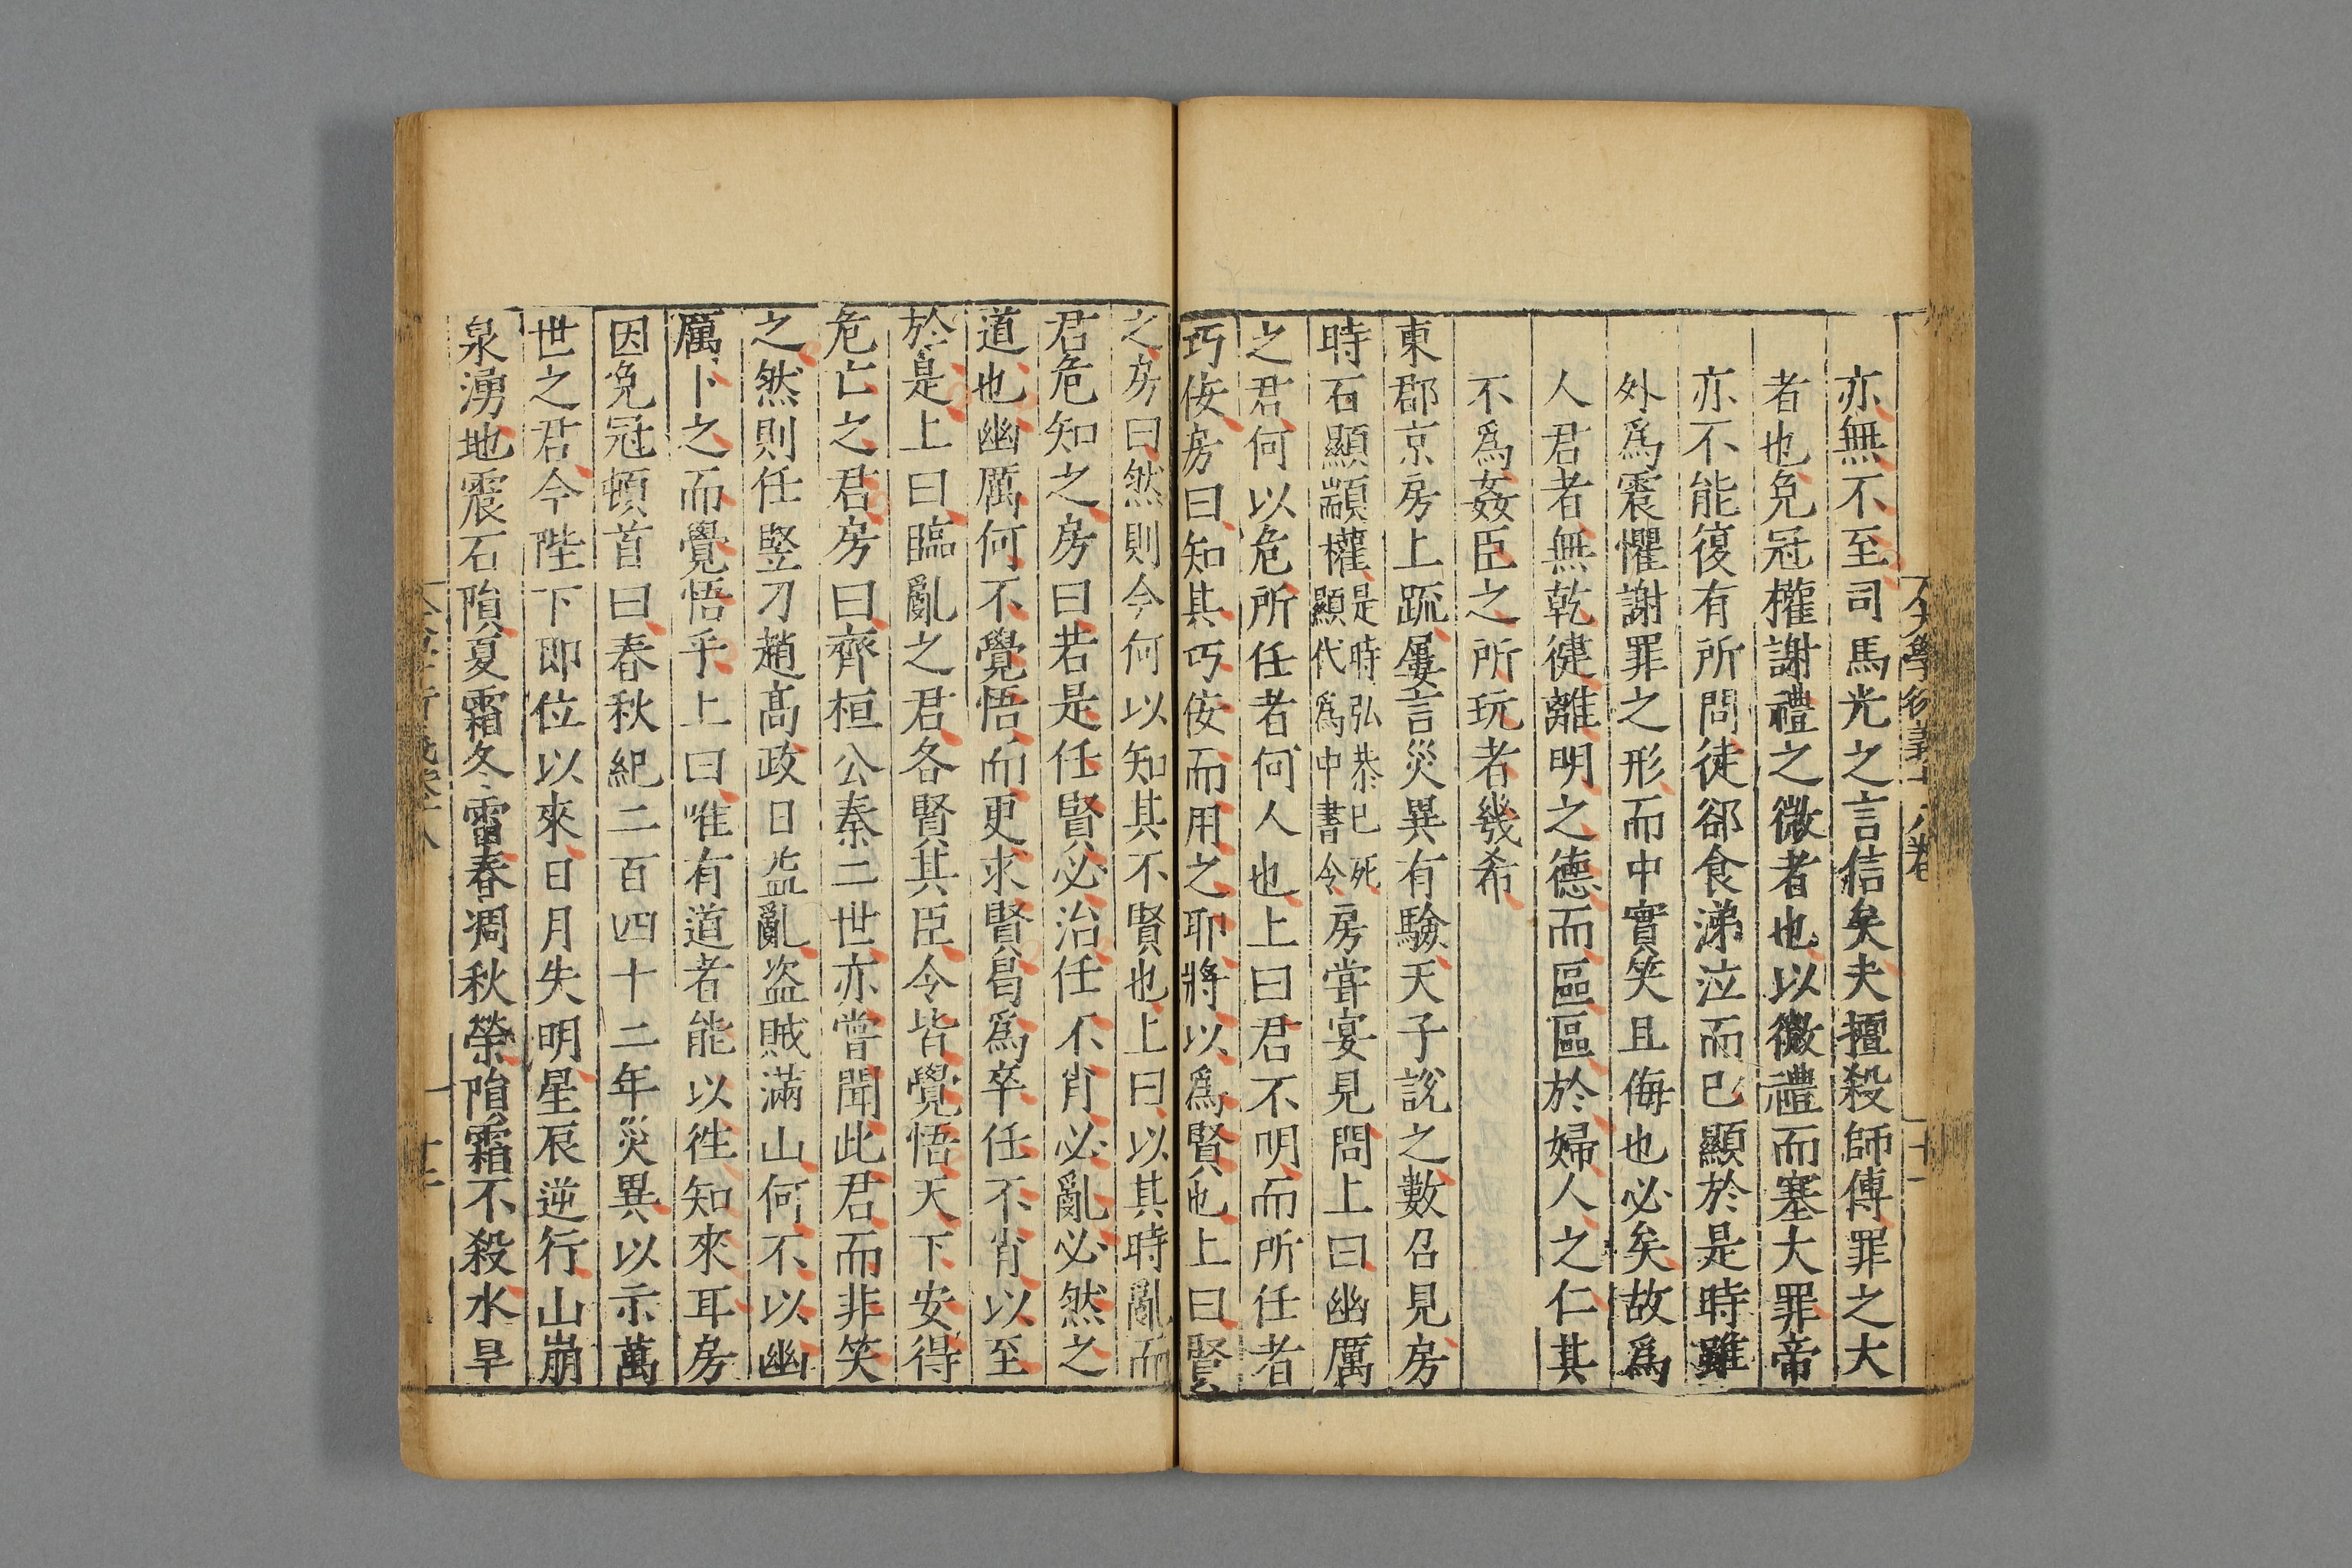 亦無不至司馬光之言信矣夫擅殺師傅罪之大
者也免冠權謝禮之微者也以微禮而塞大罪帝
亦不能復有所問徒卻食涕泣而已顯於是時雖
外爲震懼謝罪之形而中實笑且侮也必矣故爲
人君者無乾徤離明之德而區區於婦人之仁其
不爲姦臣之所玩者幾希
東郡京房上䟽屢言災異有驗天子說之數召見房
時石顯顓權是時弘恭已死顯代爲中書令房嘗宴見問上曰幽厲
之君何以危所任者何人也上曰君不明而所任者
巧佞房曰知其巧佞而用之耶將以爲賢也上曰賢
之房曰然則今何以知其不賢也上曰以其時亂而
君危知之房曰若是任賢必治任不肖必亂必然之
道也幽厲何不覺悟而更求賢曷爲卒任不肖以至
於是上曰臨亂之君各賢其臣令皆覺悟天下安得
危亡之君房曰齊桓公秦二世亦嘗聞此君而非笑
之然則任竪刁趙髙政日益亂盗賊滿山何不以幽
厲卜之而覺悟乎上曰唯有道者能以徃知來耳房
因免冠頓首曰春秋紀二百四十二年災異以示萬
世之君今陛下即位以來日月失明星辰逆行山崩
泉湧地震石隕夏霜冬雷春凋秋榮隕霜不殺水旱